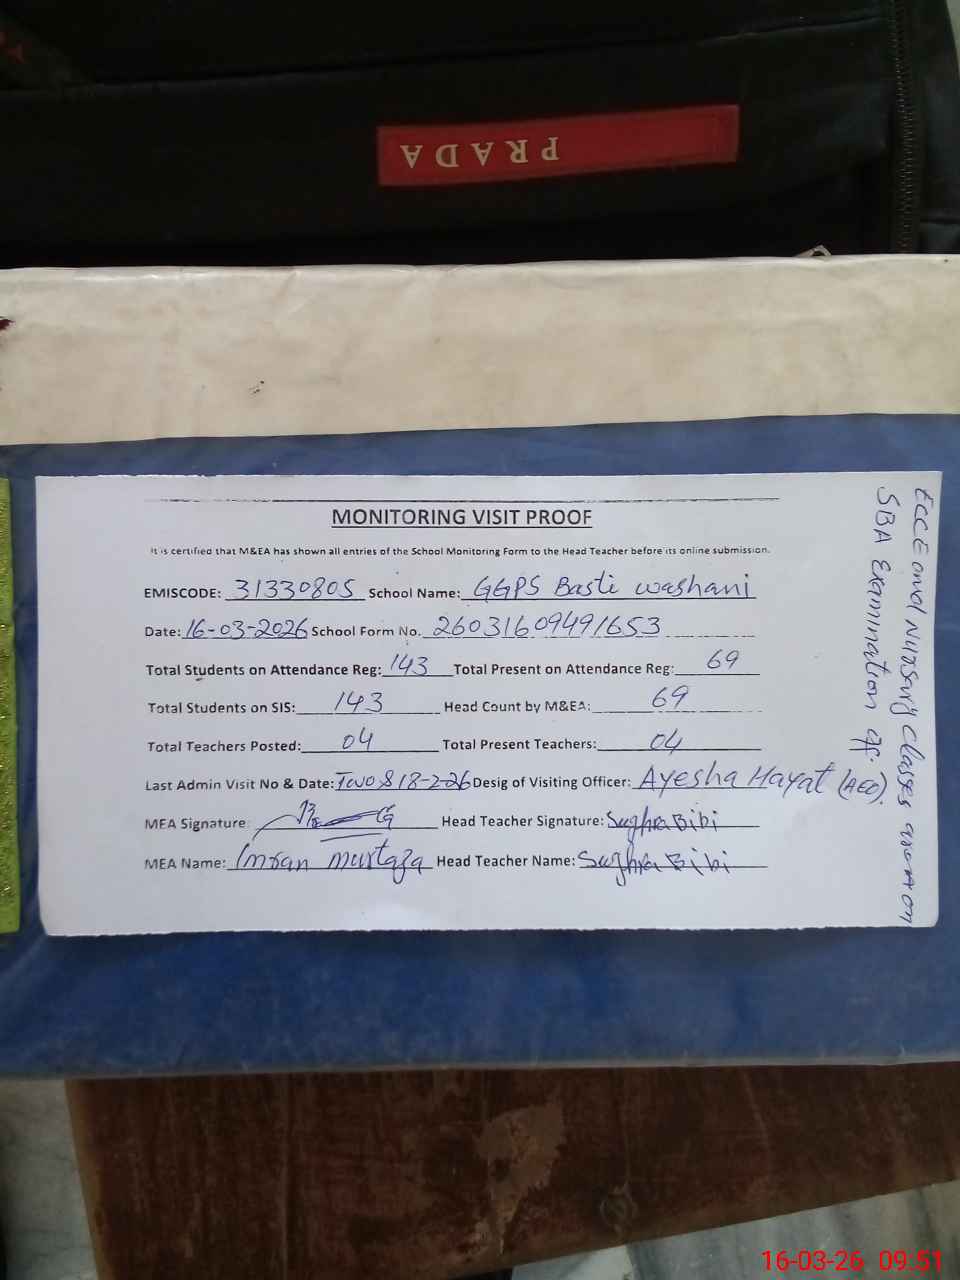 PRADA
MONITORING VISIT PROOF
It is certified that M&EA has shown all entries of the School Monitoring Form to the Head Teacher before its online submission.
EMISCODE: 31330805 School Name: GGPS Basti washani
Date: 16-03-2026 School Form No. 26031609491653
Total Students on Attendance Reg: 143 Total Present on Attendance Reg: 69
Total Students on SIS: 143 Head Count by M&EA: 69
Total Teachers Posted: 04 Total Present Teachers: 04
Last Admin Visit No & Date: Two & 18-2-26 Desig of Visiting Officer: Ayesha Hayat (AEO).
MEA Signature: Head Teacher Signature: Sughra Bibi
MEA Name: Imran murtaza Head Teacher Name: Sughra Bibi
ECCE and Nursury classes are on
SBA Examination
16-03-26 09:51